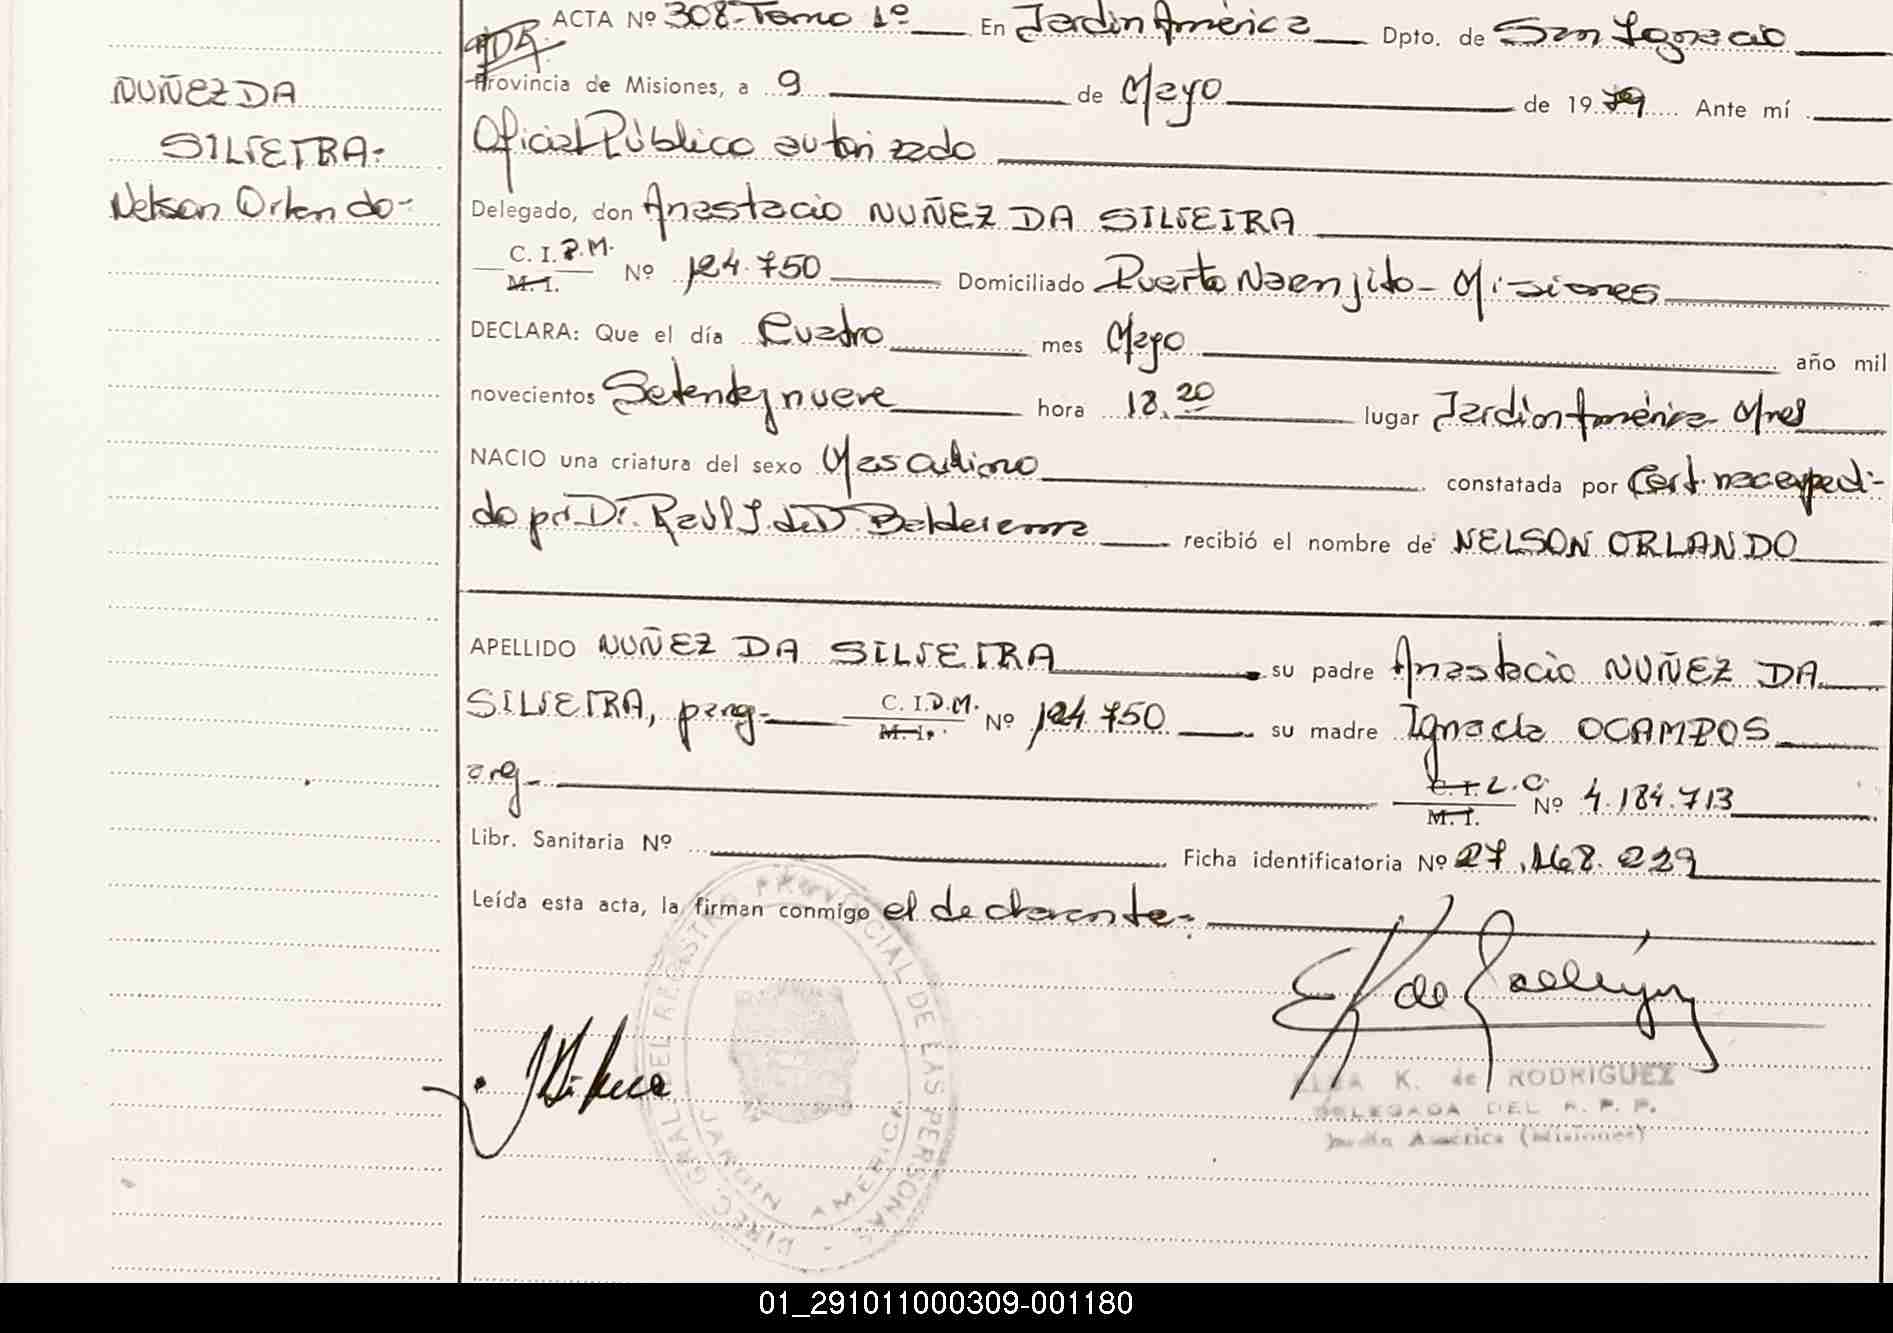 ACTA Nº 308-Tomo 1º En Jardín América Dpto. de San Ignacio
Provincia de Misiones, a 9 de Mayo de 1979 Ante mí
NUÑEZ DA
SILVEIRA:
Nelson Orlando-
Oficial Público autorizado
Delegado, don Anastacio NUÑEZ DA SILVEIRA
C. I. P.M. M. I. Nº 124.750 Domiciliado Puerto Naranjito - Misiones
DECLARA: Que el día Cuatro mes Mayo año mil
novecientos Setenta y nueve hora 18.20 lugar Jardín América Mnes
NACIO una criatura del sexo Masculino constatada por Cert. nac expedi-
do por Dr. Raúl J. de D. Balderrama recibió el nombre de NELSON ORLANDO
APELLIDO NUÑEZ DA SILVEIRA su padre Anastacio NUÑEZ DA
SILVEIRA, parag- C. I. P.M. M. I. Nº 124.750 su madre Ignacia OCAMPOS
arg- C. I. L.C. M. I. Nº 4.184.713
Libr. Sanitaria Nº Ficha identificatoria Nº 27.168.229
Leída esta acta, la firman conmigo el declarante-
DIREC. GRAL. DEL REGISTRO PROVINCIAL DE LAS PERSONAS
JARDIN AMERICA
K. de RODRIGUEZ
DELEGADA DEL R. P. P.
Jardín América (Misiones)
01_291011000309-001180